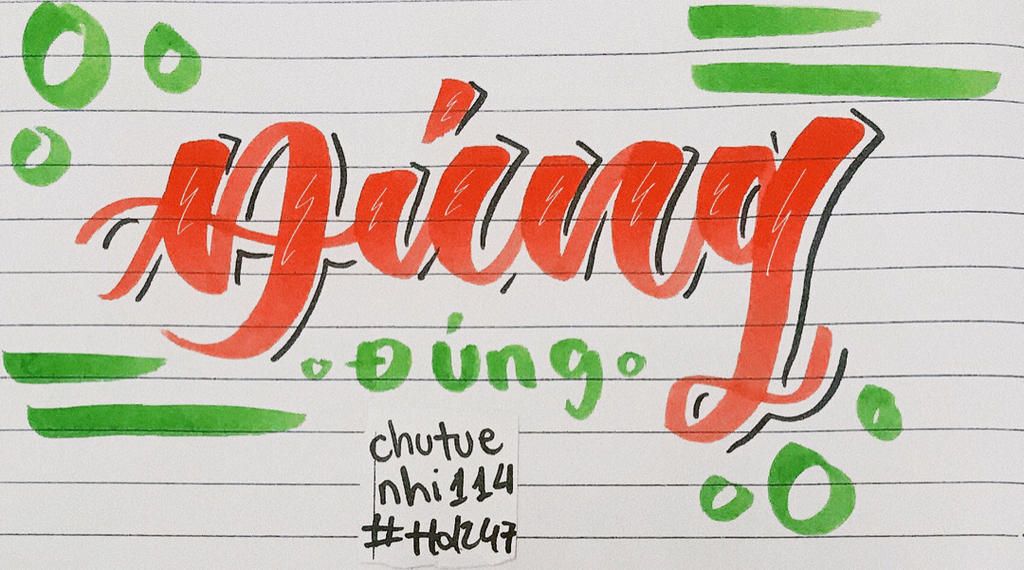 Đúng
Đúng
chutue
nhi114
#Hd247